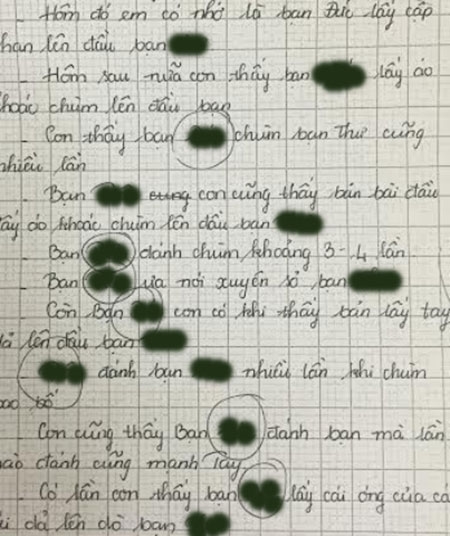 - Hôm đó em có nhớ là bạn Đức lấy cặp
lên đầu bạn
- Hôm sau nữa con thấy bạn lấy áo
khoác chùm lên đầu bạn
- Con thấy bạn chùm bạn Thư cũng
nhiều lần
- Bạn con cũng thấy bán bài đầu
áo khoác chùm lên đầu bạn
Bạn đánh chùm khoảng 3-4 lần
- Bạn nói xuyên sỏ bạn
Còn Bạn con có khi thấy bán lấy tay
lên đầu bạn
đánh bạn nhiều lần khi chùm
- Con cũng thấy Bạn đánh bạn mà lần
nào đánh cũng mạnh tay
- Có lần con thấy bạn lấy cái ống của
lên bạn